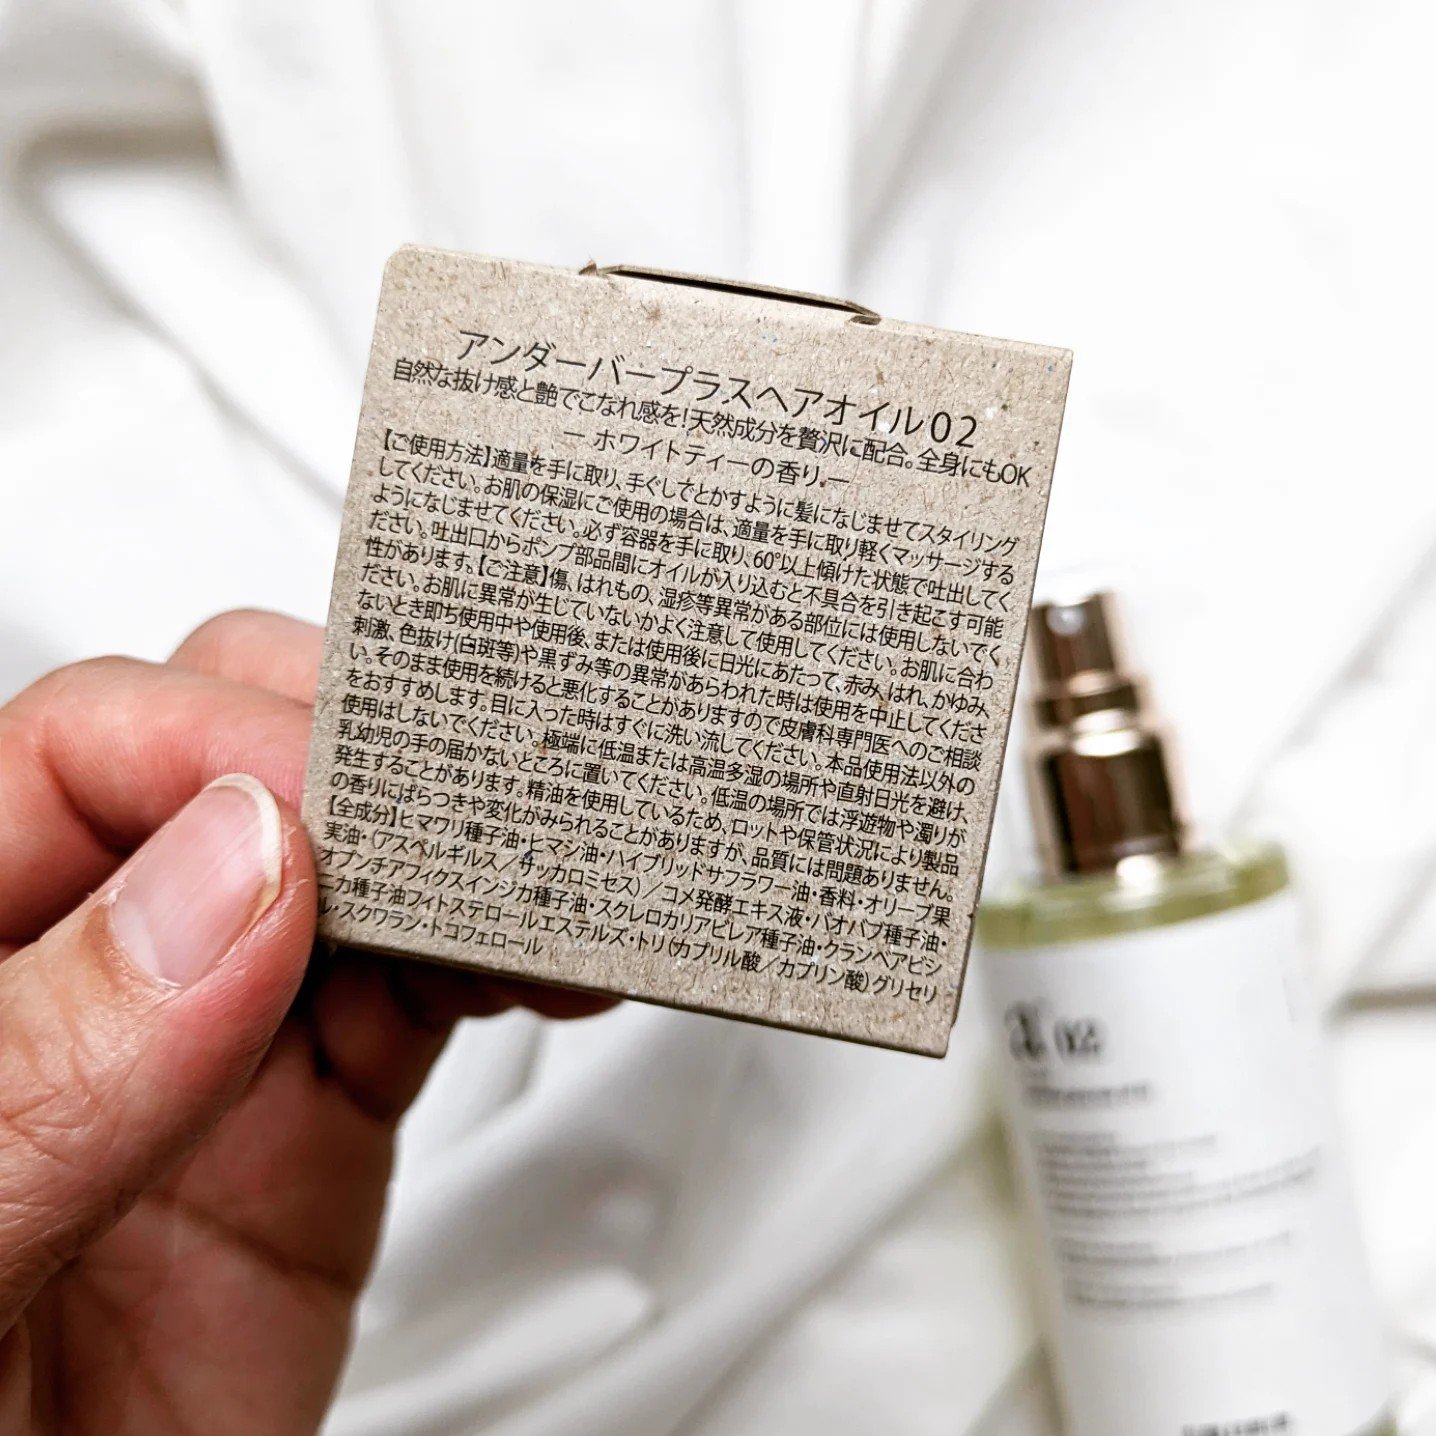 アンダーバープラスヘアオイル02
自然な抜け感と艶でこなれ感を!天然成分を贅沢に配合。全身にもOK
― ホワイトティーの香り ―
【ご使用方法】適量を手に取り、手ぐしでとかすように髪になじませてスタイリング
してください。お肌の保湿にご使用の場合は、適量を手に取り軽くマッサージする
ようになじませてください。必ず容器を手に取り、60°以上傾けた状態で吐出してく
ださい。吐出口からポンプ部品間にオイルが入り込むと不具合を引き起こす可能
性があります。【ご注意】傷、はれもの、湿疹等異常がある部位には使用しないでく
ださい。お肌に異常が生じていないかよく注意して使用してください。お肌に合わ
ないとき即ち使用中や使用後、または使用後に日光にあたって、赤み、はれ、かゆみ、
刺激、色抜け(白斑等)や黒ずみ等の異常があらわれた時は使用を中止してくださ
い。そのまま使用を続けると悪化することがありますので皮膚科専門医へのご相談
をおすすめします。目に入った時はすぐに洗い流してください。本品使用法以外の
使用はしないでください。極端に低温または高温多湿の場所や直射日光を避け、
乳幼児の手の届かないところに置いてください。低温の場所では浮遊物や濁りが
発生することがあります。精油を使用しているため、ロットや保管状況により製品
の香りにばらつきや変化がみられることがありますが、品質には問題ありません。
【全成分】ヒマワリ種子油・ヒマシ油・ハイブリッドサフラワー油・香料・オリーブ果
実油・(アスペルギルス/サッカロミセス)/コメ発酵エキス液・バオバブ種子油・
オプンチアフィクスインジカ種子油・スクレロカリアビレア種子油・クランベアビシ
ニカ種子油フィトステロールエステルズ・トリ(カプリル酸/カプリン酸)グリセリ
ル・スクワラン・トコフェロール
02